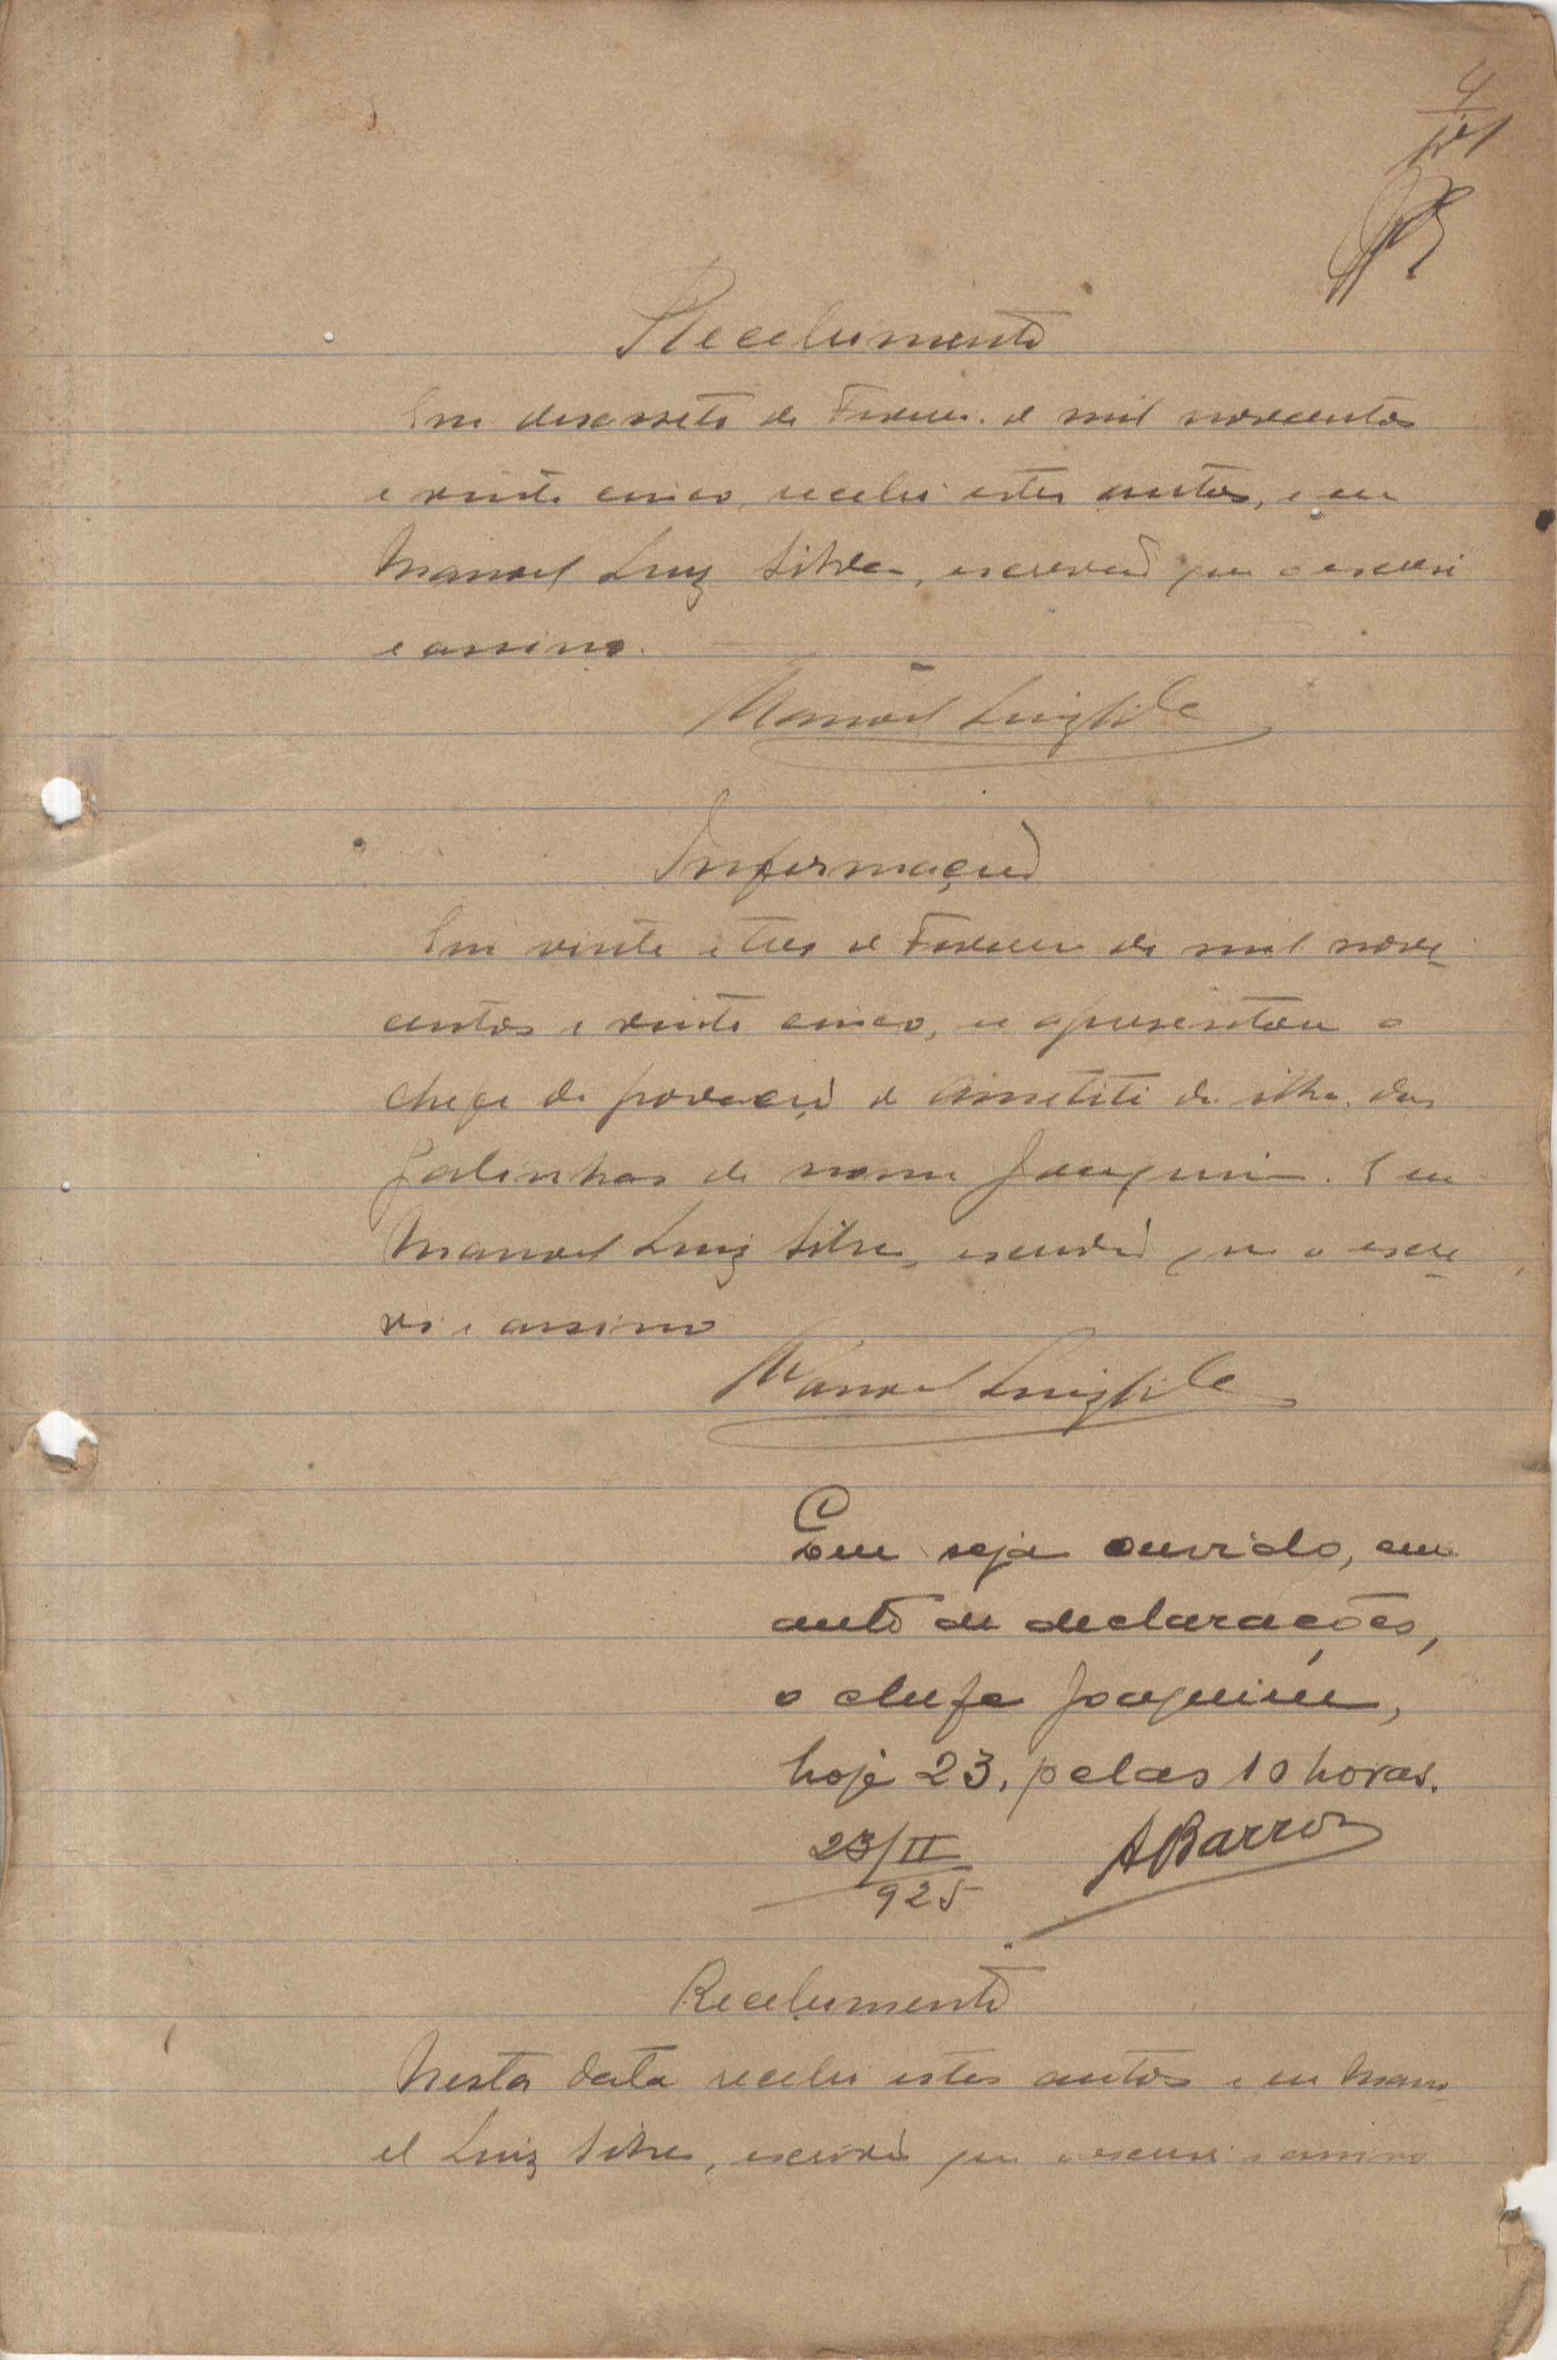 4
Recebimento
Em desassete de Fever. de mil novecentos
e vinte cinco, recebi estes autos, e eu
Manoel Luiz Silva, escrivão que o escrevi
e assino.
Manoel Luiz Silva
Informação
Em vinte e tres de Fevereiro de mil nove-
centos e vinte cinco, se apresentou o
chefe da povoação de da ilha das
Galinhas de nome Joaquim. E eu
Manoel Luiz Silva, escrivão que o escre-
vi e assino
Manoel Luiz Silva
Que seja ouvido, em
auto de declarações,
o chefe Joaquim,
hoje 23, pelas 10 horas.
23/II
925 ABarros
Recebimento
Nesta data recebi estes autos e eu Mano-
el Luiz Silva, escrivão que o escrevi e assino